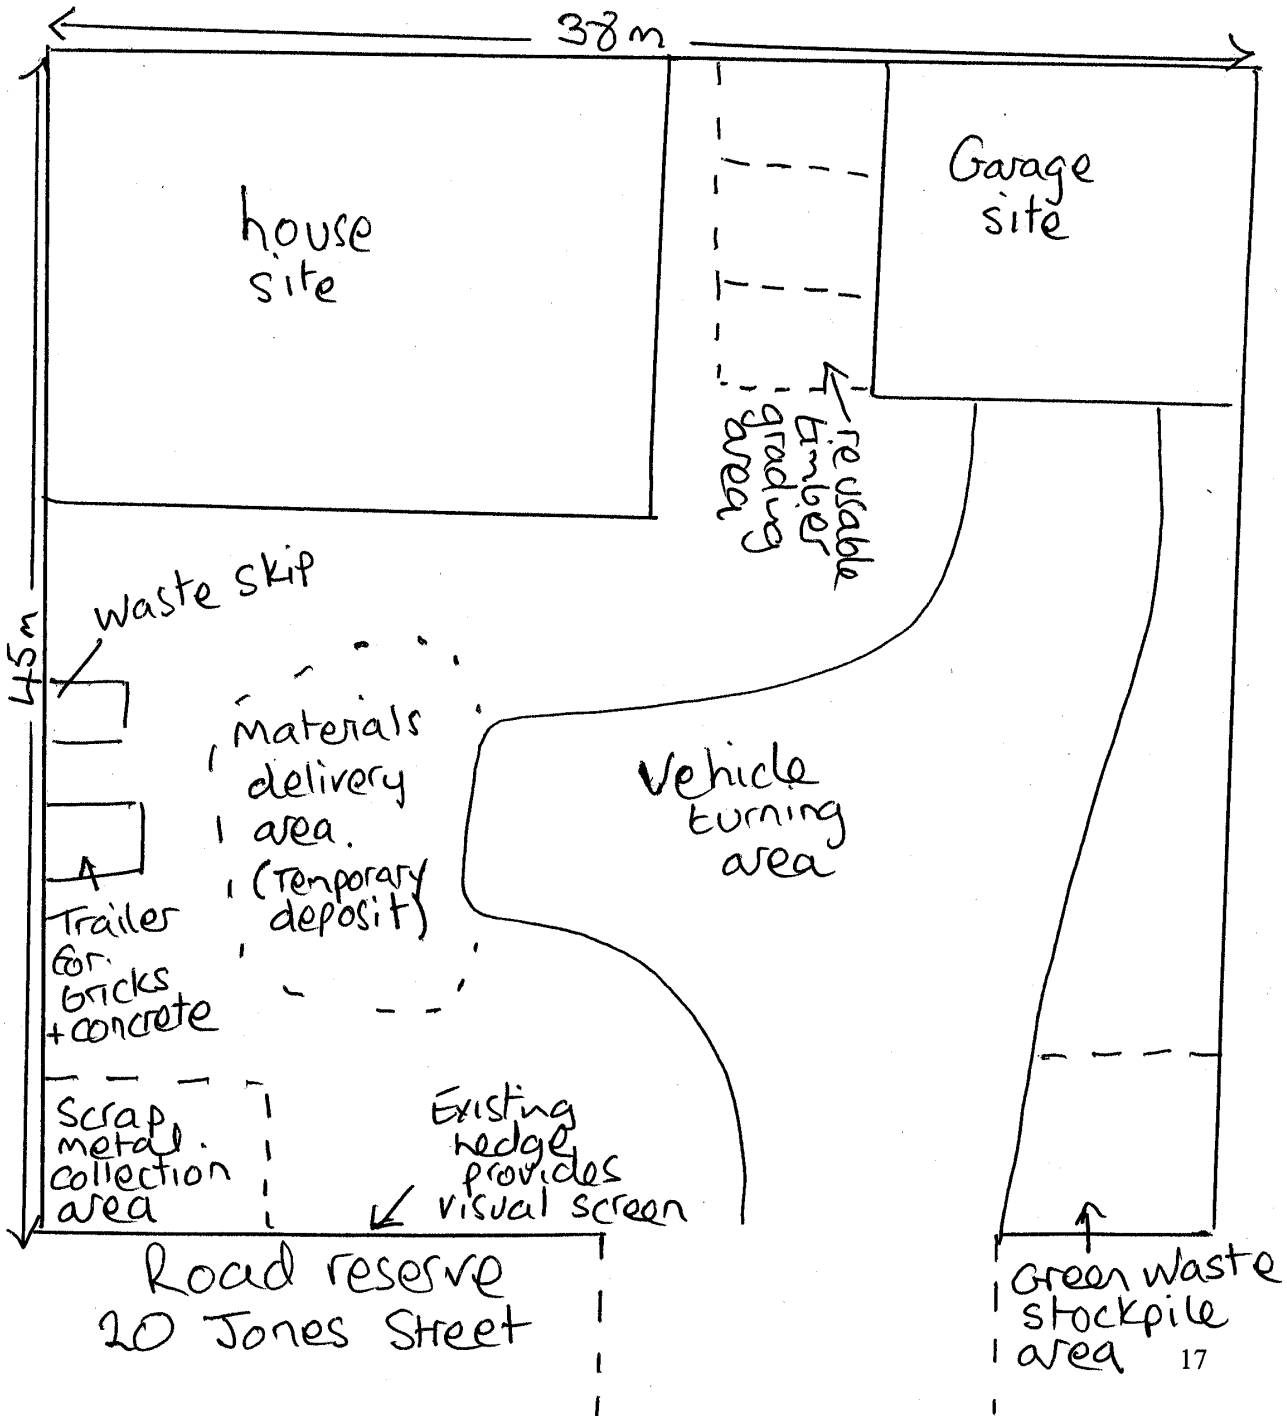 38m
house
site
Garage
site
reusable
timber
grading
area
waste skip
45m
Materials
delivery
area.
(Temporary
deposit)
Vehicle
turning
area
Trailer
for
bricks
+ concrete
Scrap
metal
collection
area
Existing
hedge
provides
visual screen
Road reserve
20 Jones Street
Green waste
stockpile
area
17